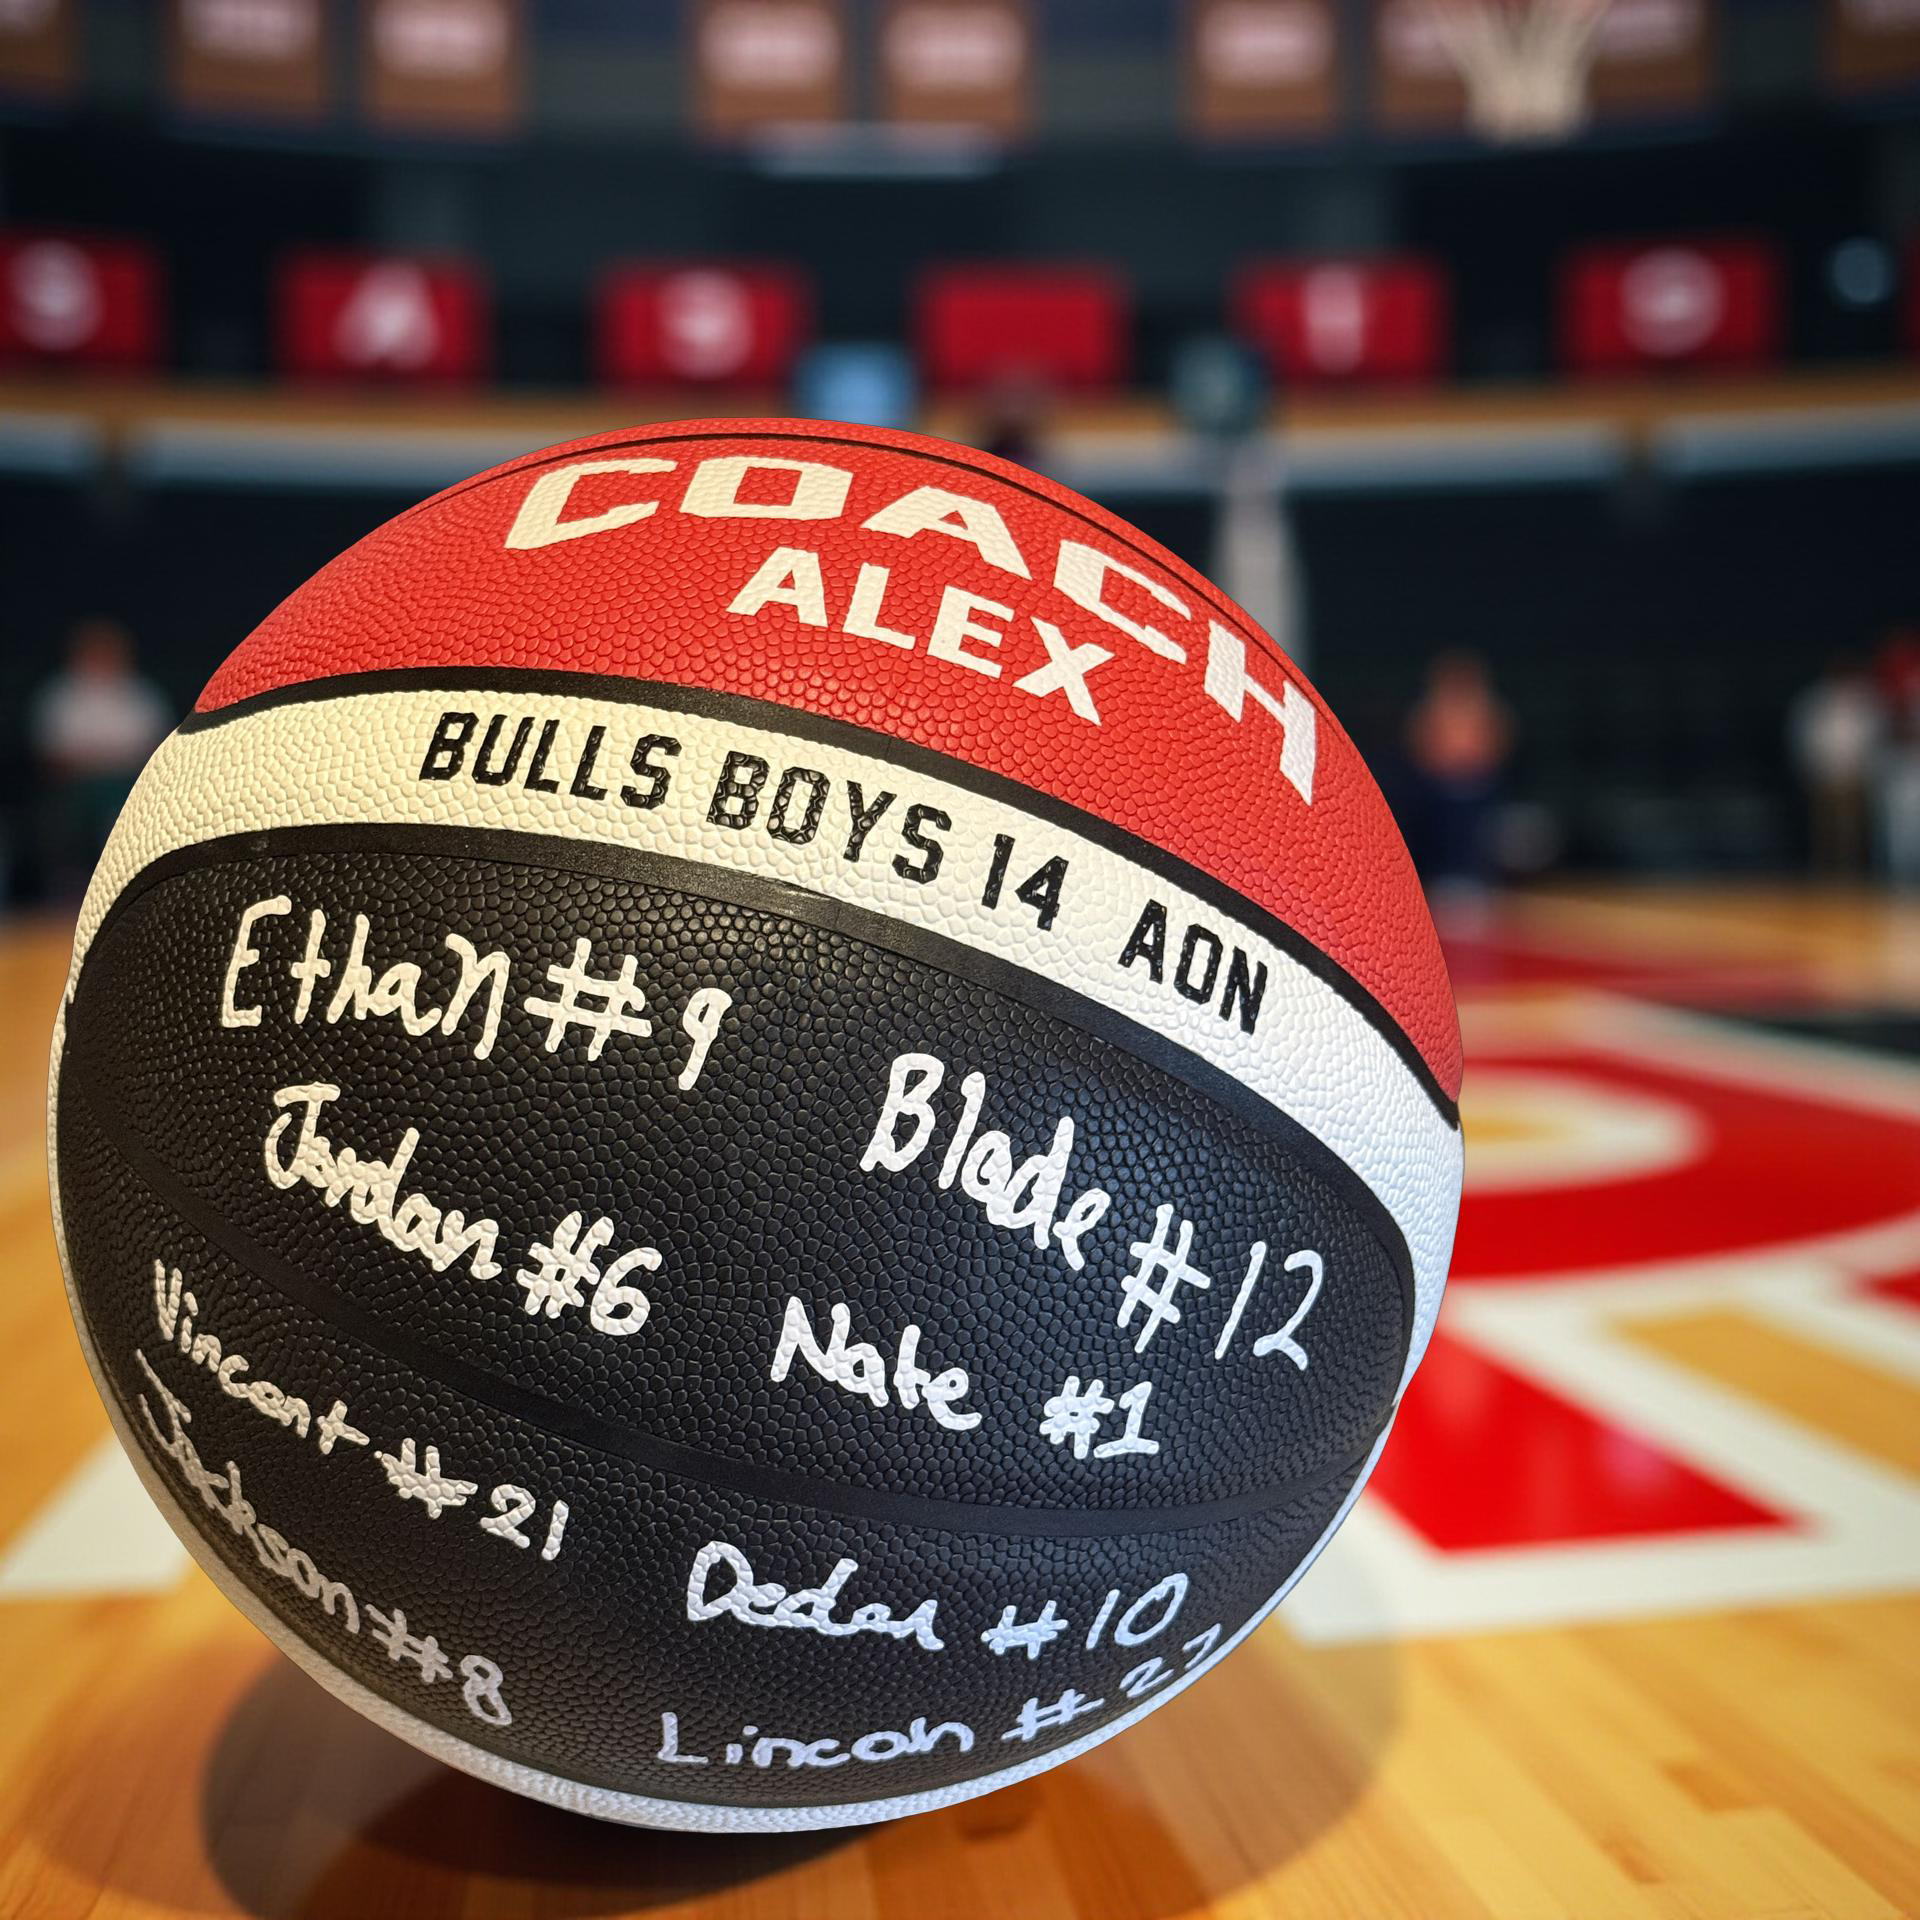 COACH
ALEX
BULLS BOYS 14 AON
Ethan #9
Blade #12
Jordan #6
Nate #1
Vincent #21
Jackson #8
Dedan #10
Lincoln #27